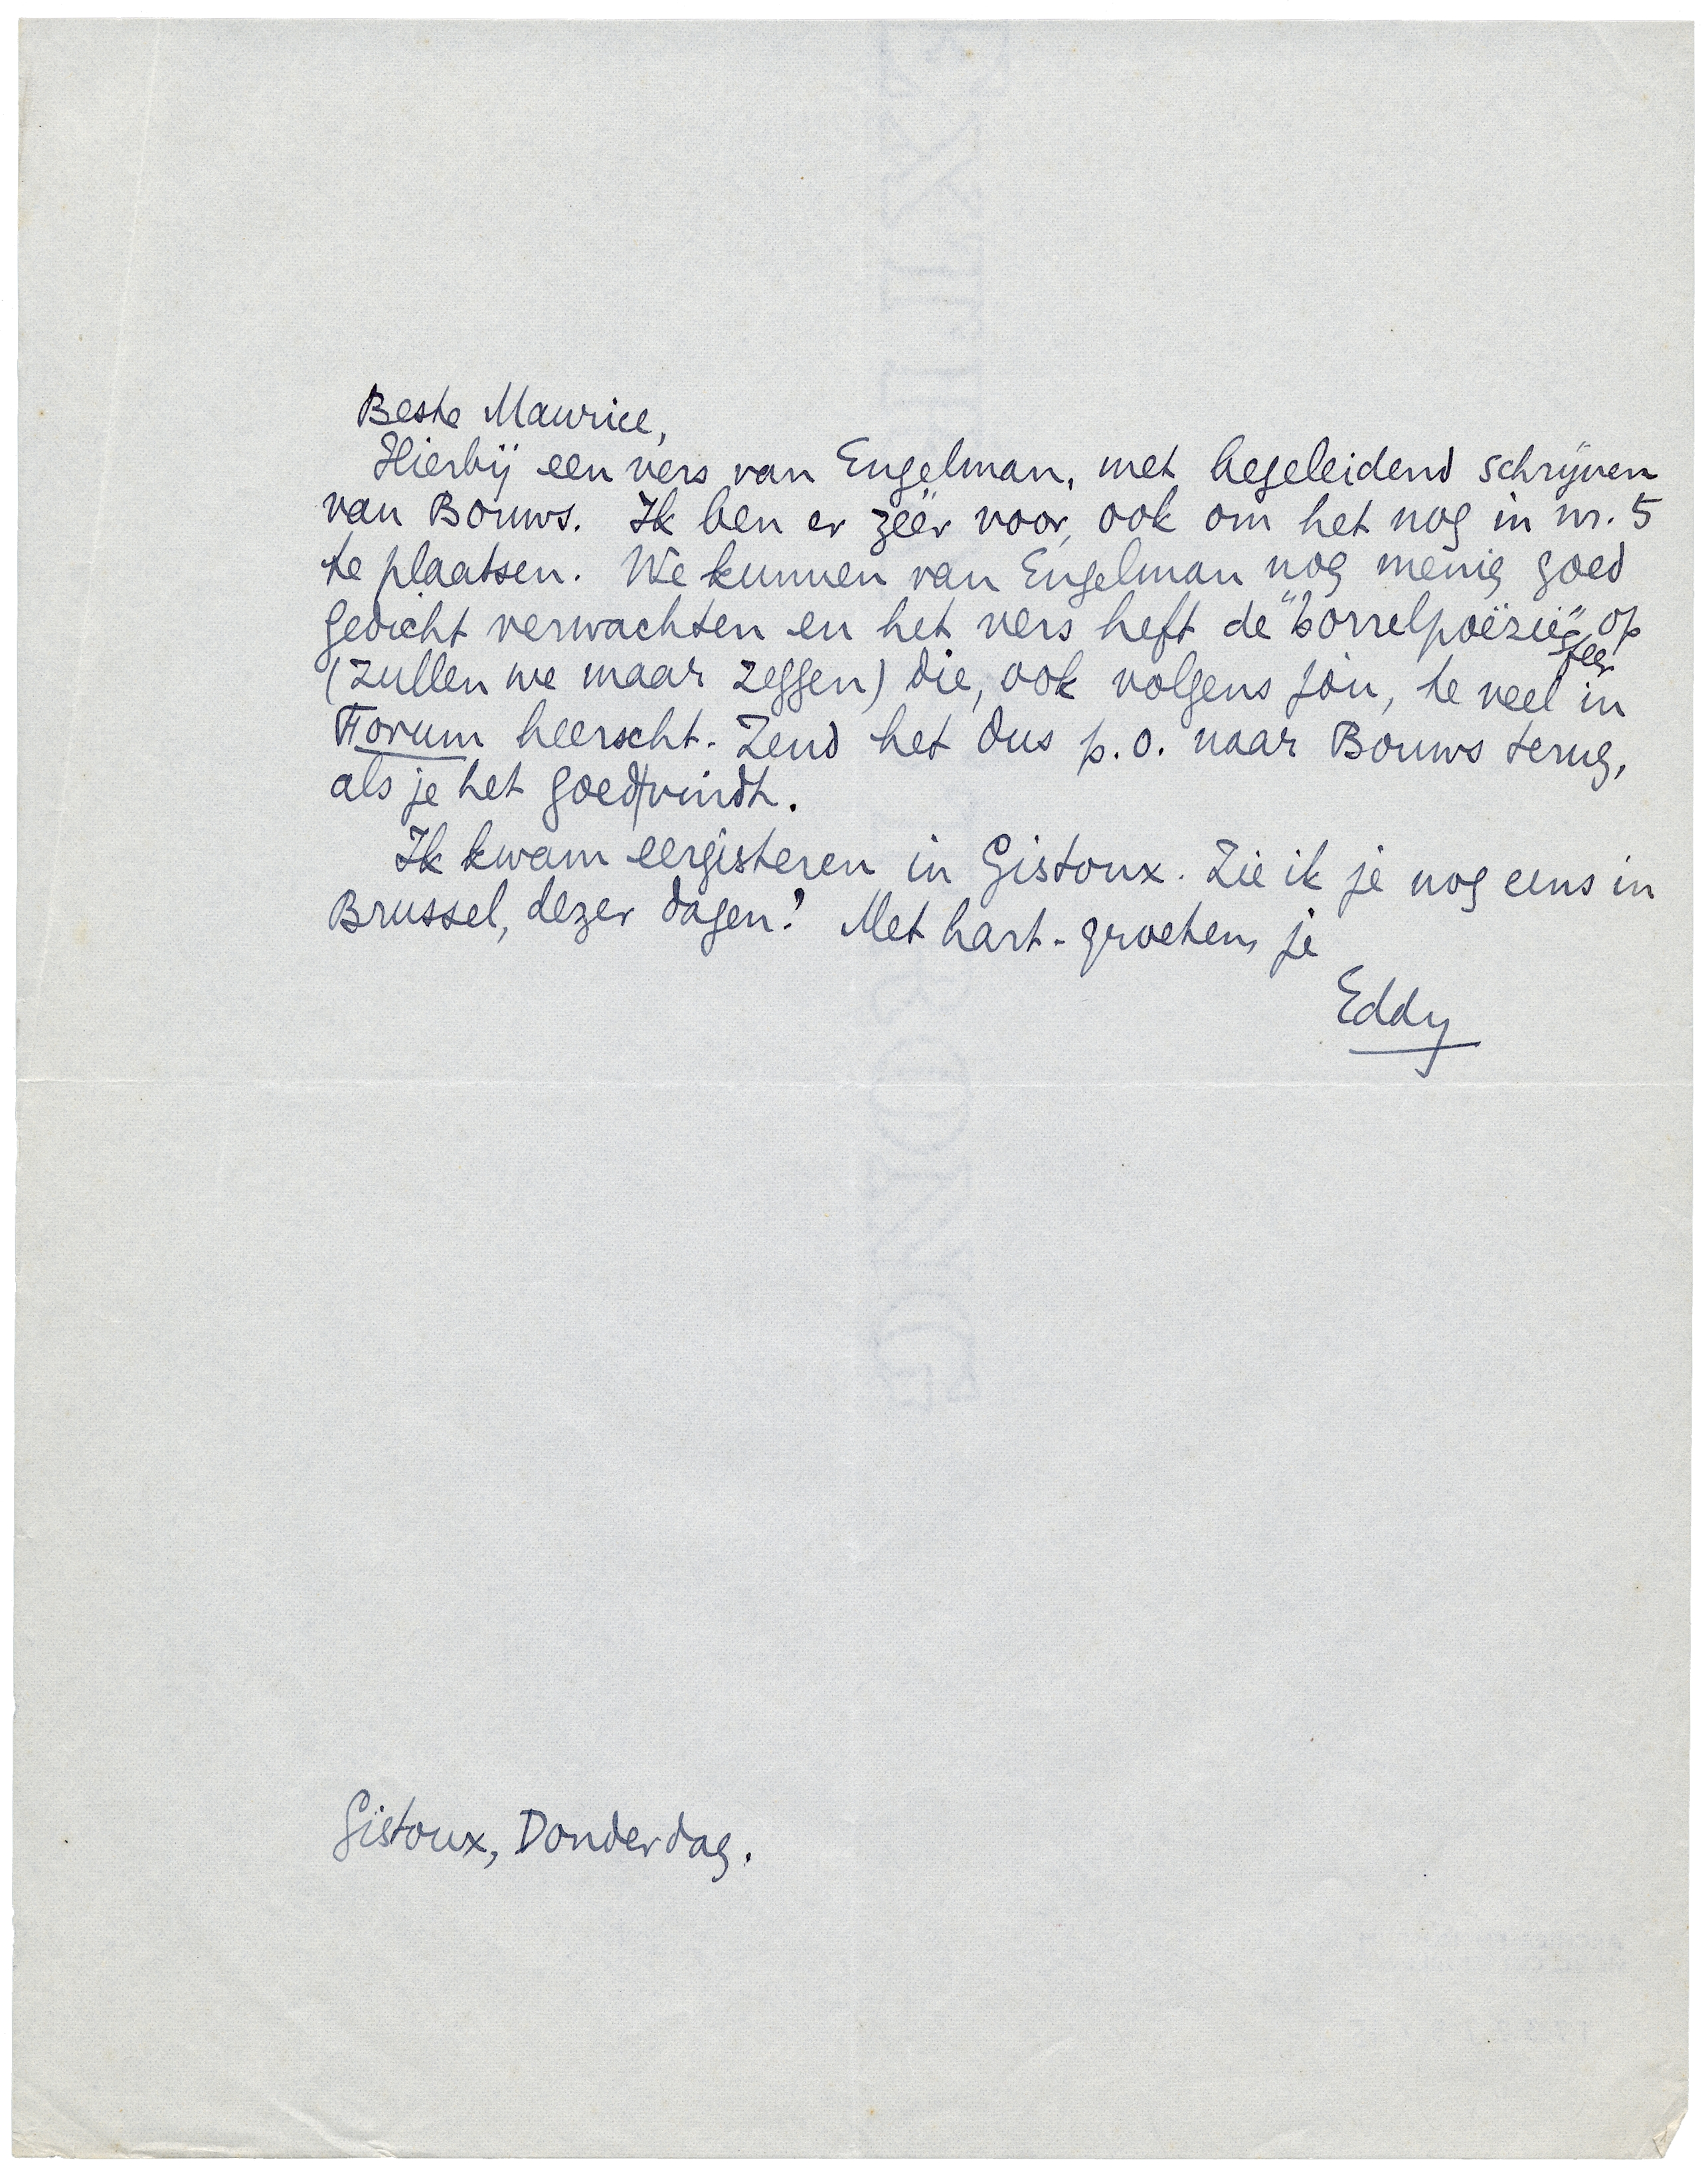 Beste Maurice,
Hierbij een vers van Engelman, met begeleidend schrijven
van Bouws. Ik ben er zéér voor, ook om het nog in nr. 5
te plaatsen. We kunnen van Engelman nog menig goed
gedicht verwachten en het vers heft de "borrelpoëzie" op
sfeer
(zullen we maar zeggen) die, ook volgens jou, te veel in
Forum heerscht. Zend het dus p.o. naar Bouws terug,
als je het goedvindt.
Ik kwam eergisteren in Gistoux. Zie ik je nog eens in
Brussel, dezer dagen? Met hart. groeten, je
Eddy
Gistoux, Donderdag.